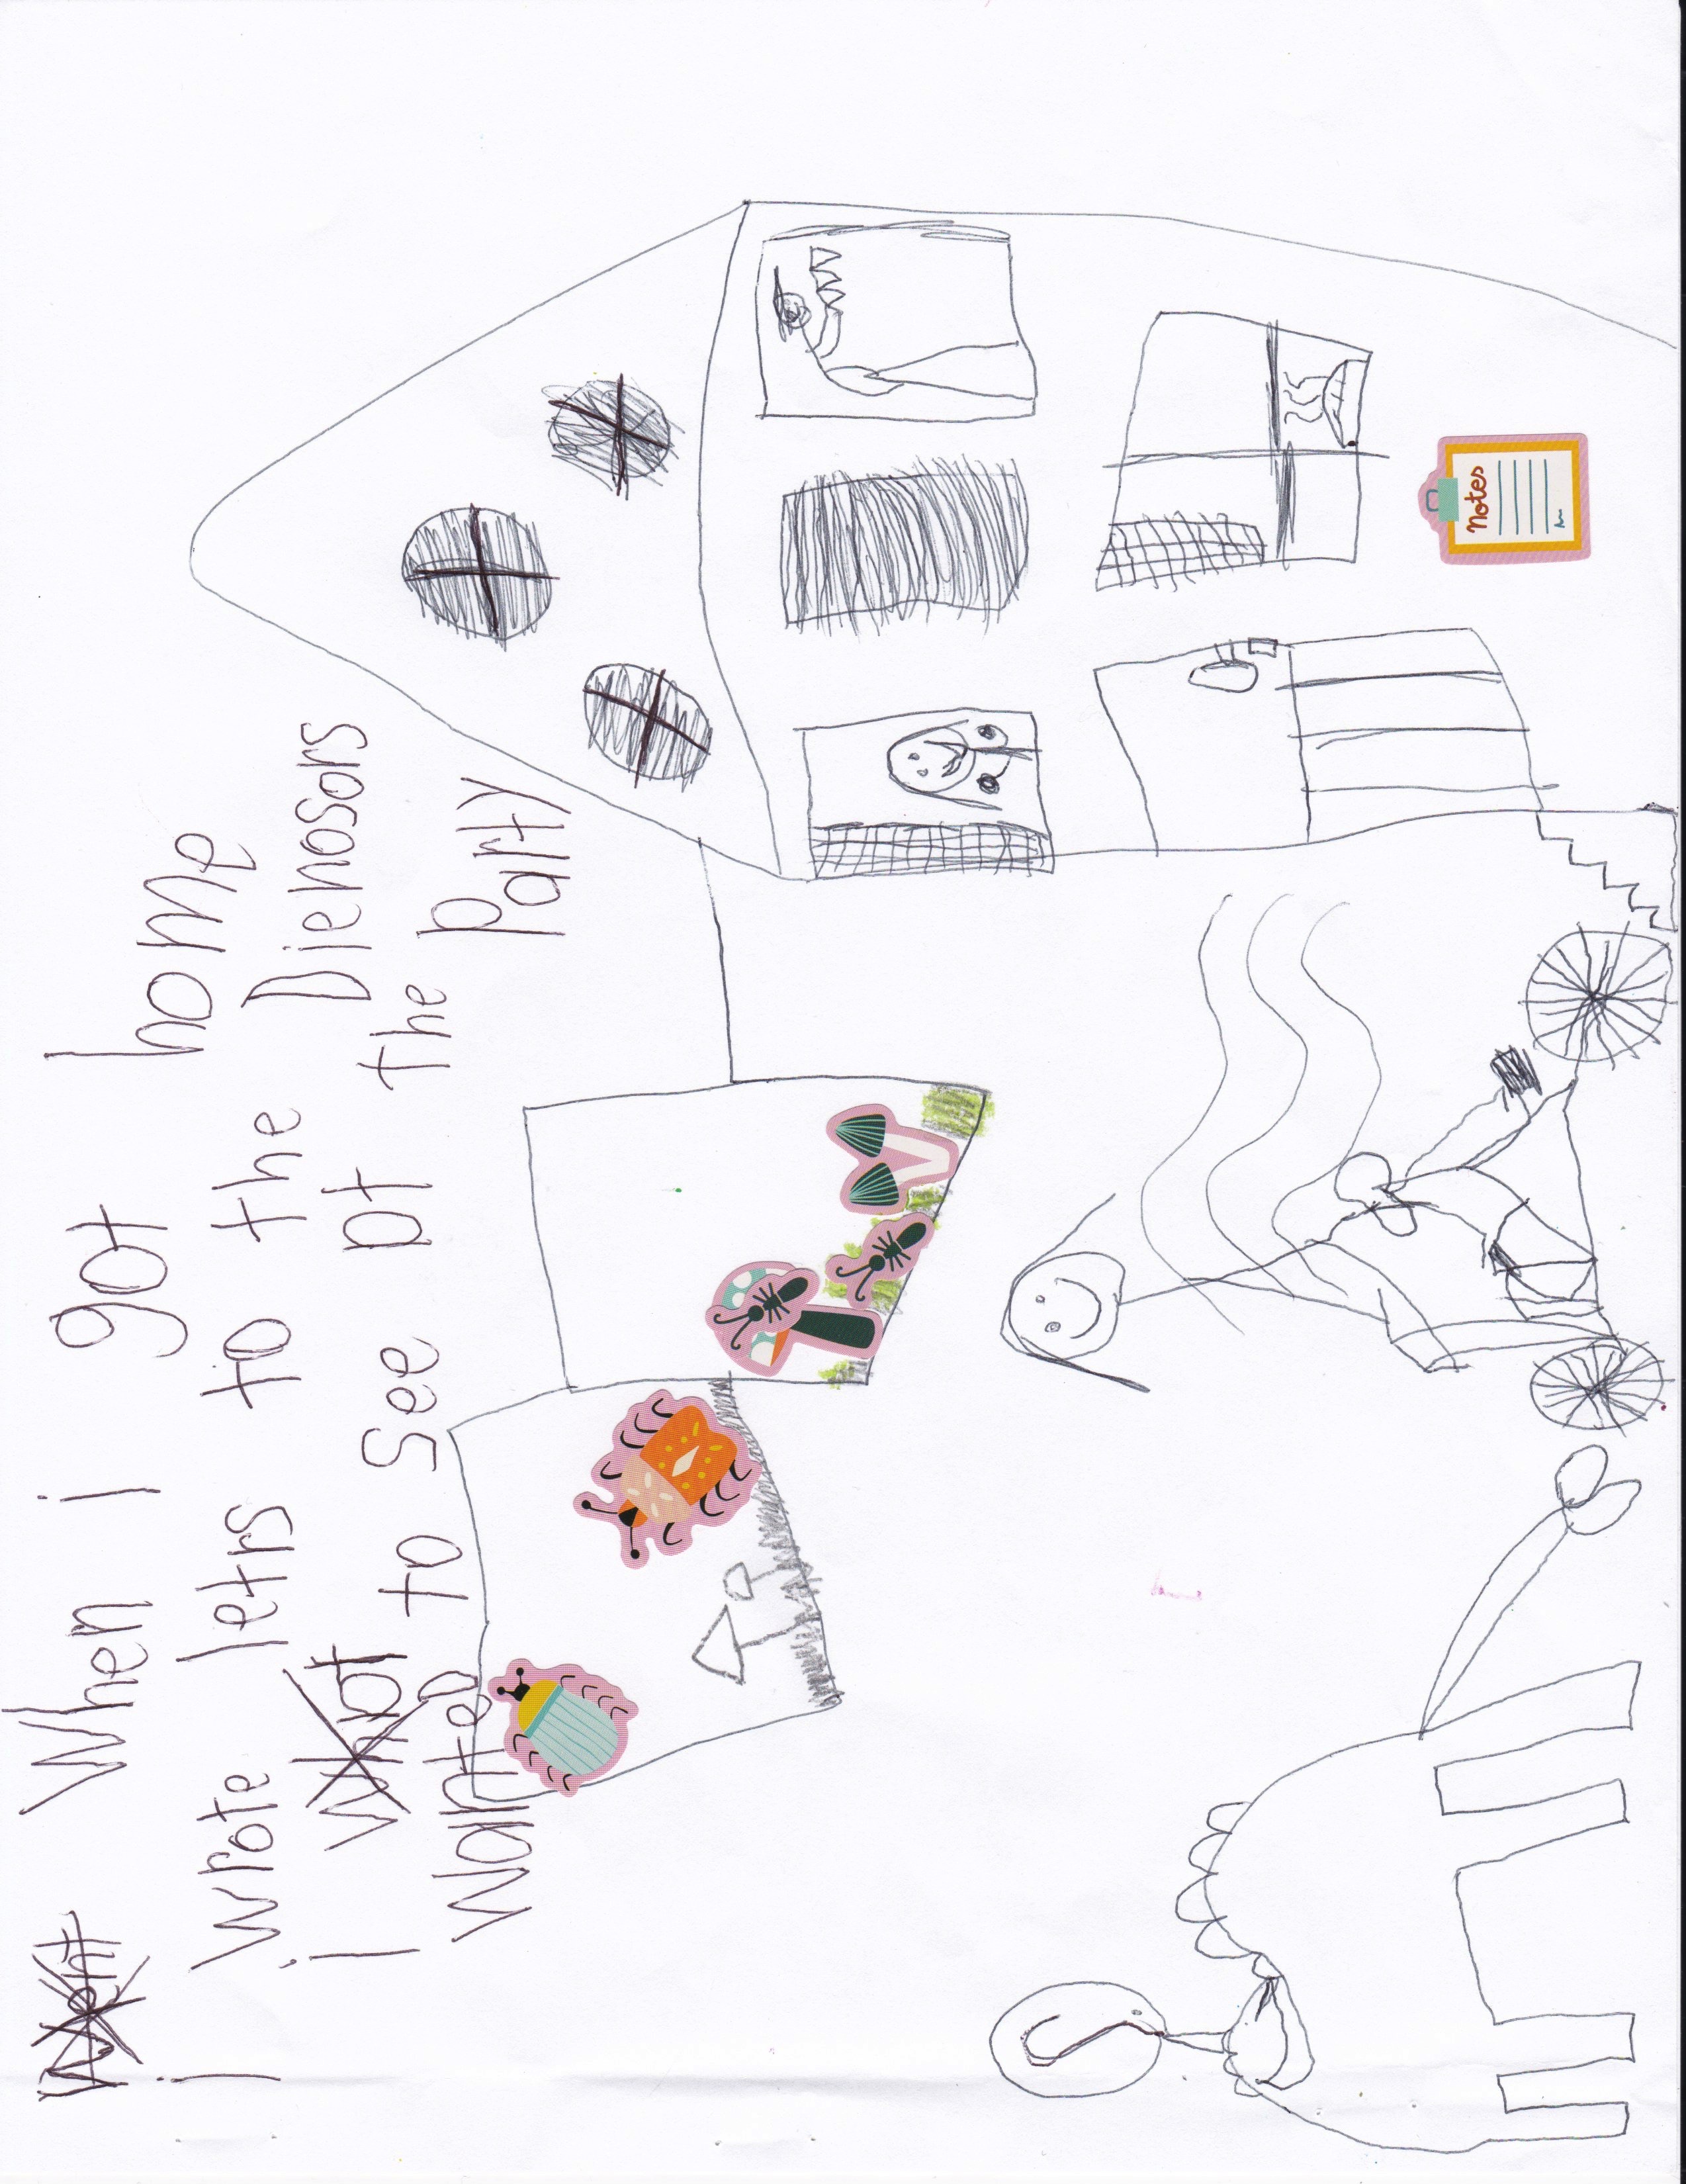 Went When i got home
i wrote letrs to the Dienosors
i Whot
wanteD to see Dt the Party
Notes